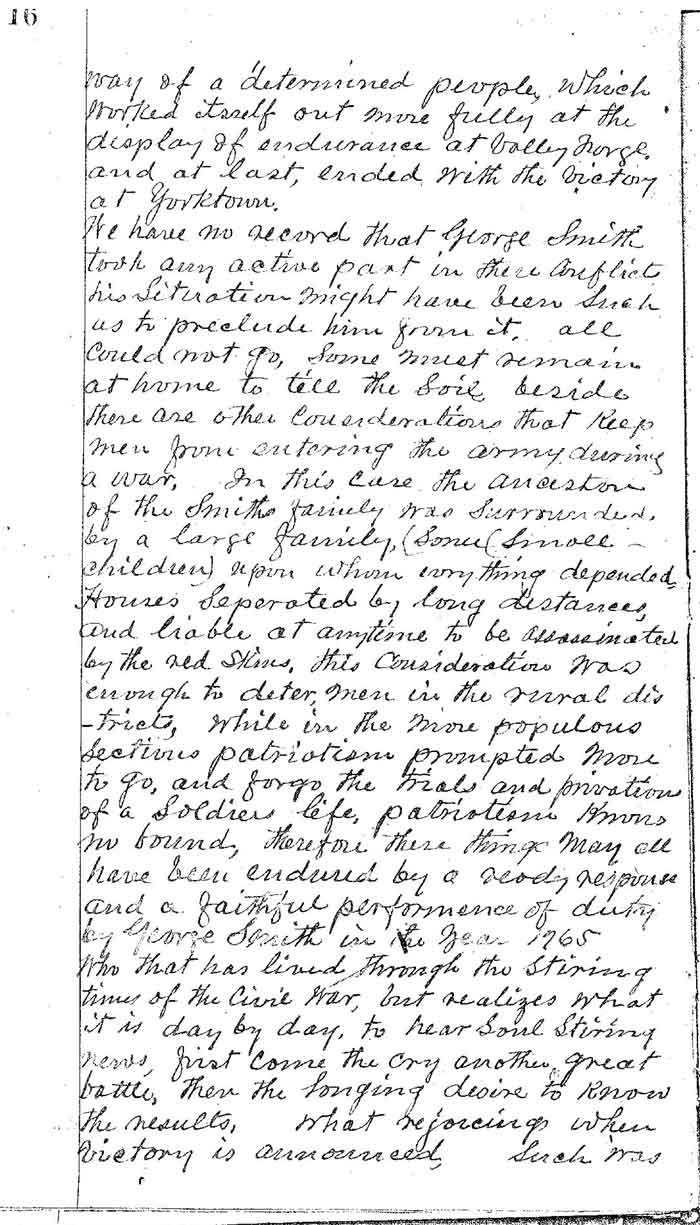 16
way of a determined people, which
worked itself out more fully at the
display of endurance at Valley Forge.
and at last, ended with the Victory
at Yorktown.
We have no record that George Smith
took any active part in these Conflict
his Situation might have been Such
as to preclude him from it, all
Could not go, Some must remain
at home to till the Soil, beside
there are other Considerations that Keep
men from entering the army during
a war. In this Case the Ancestor
of the Smiths family was Surrounded.
by a large family, (Some (Small -
children) upon whom evrything depended.
Houses Seperated by long distances,
and liable at anytime to be assassinated
by the red Skins, this Consideration was
enough to deter, men in the rural dis
-tricts, while in the More populous
Sections patriotism prompted More
to go, and forgo the trials and privation
of a Soldiers life, patriotism Knows
no bound, therefore these things May all
have been endured by a ready response
and a faithful performence of duty
by George Smith in the Year 1765
Who that has lived through the Stiring
times of the Civil War, but realizes what
it is day by day, to hear Soul Stiring
news, first Come the Cry another great
battle, then the longing desire to Know
the results, What rejoicings when
Victory is announced, Such was